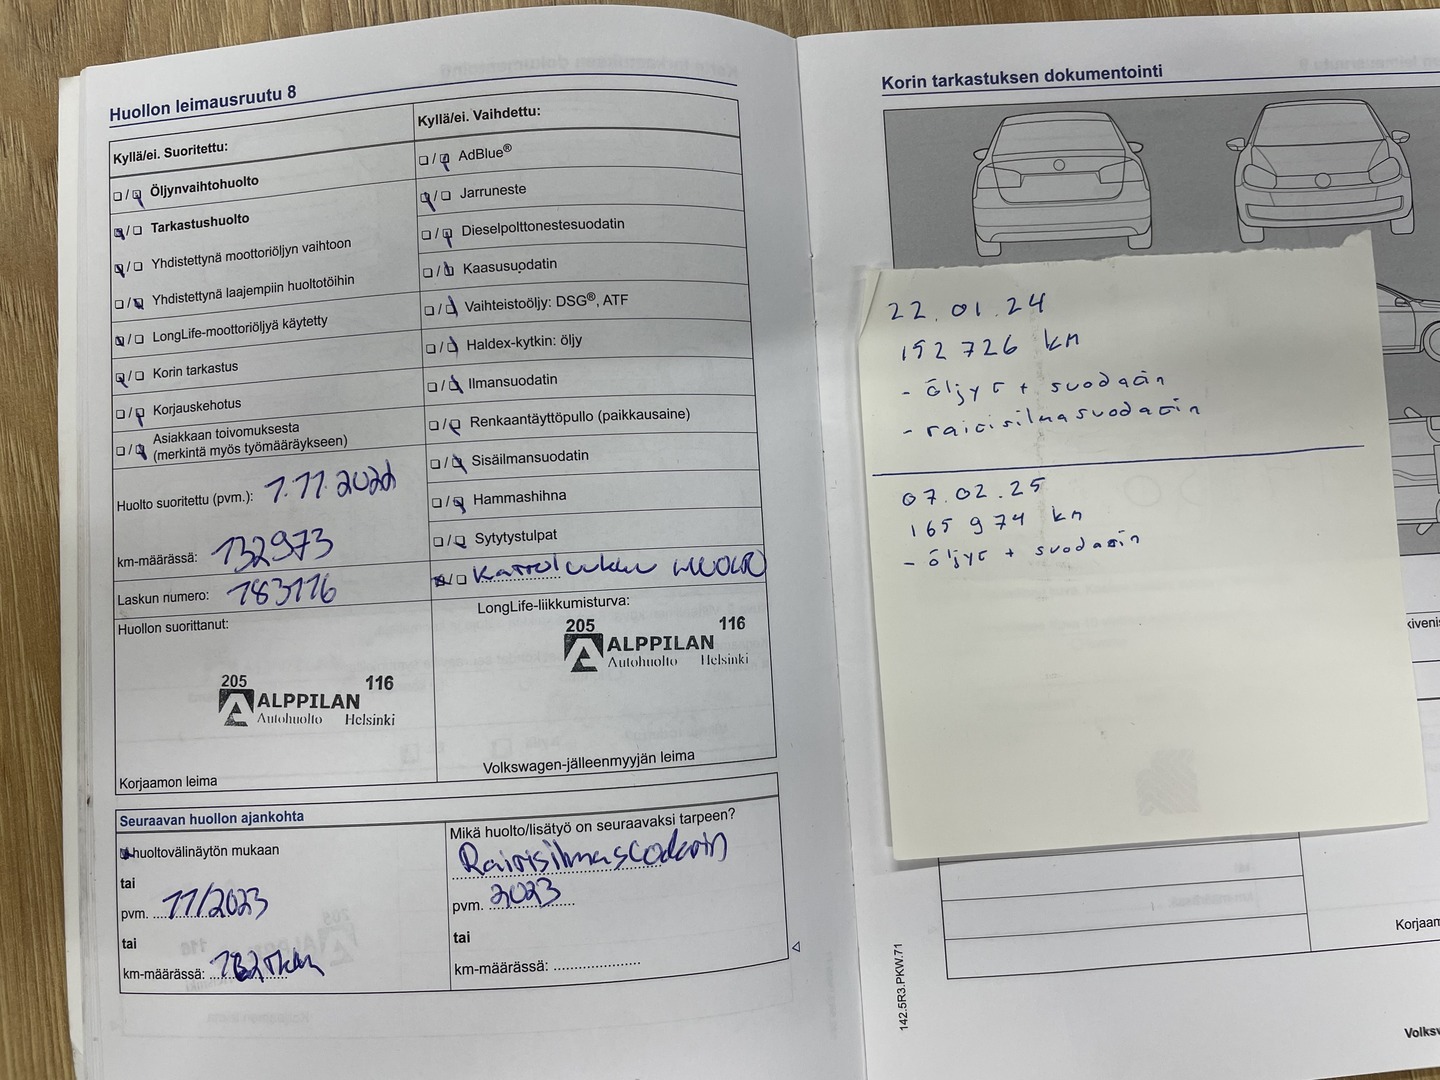 Huollon leimausruutu 8
Kyllä/ei. Suoritettu:
Öljynvaihtohuolto
Tarkastushuolto
Yhdistettynä moottoriöljyn vaihtoon
Yhdistettynä laajempiin huoltotöihin
LongLife-moottoriöljyä käytetty
Korin tarkastus
Korjauskehotus
Asiakkaan toivomuksesta
(merkintä myös työmääräykseen)
Huolto suoritettu (pvm.): 1.11.2022
km-määrässä: 132973
Laskun numero: 183116
Huollon suorittanut:
205 116
ALPPILAN
Autohuolto Helsinki
Korjaamon leima
Kyllä/ei. Vaihdettu:
AdBlue®
Jarruneste
Dieselpolttonestesuodatin
Kaasusuodatin
Vaihteistoöljy: DSG®, ATF
Haldex-kytkin: öljy
Ilmansuodatin
Renkaantäyttöpullo (paikkausaine)
Sisäilmansuodatin
Hammashihna
Sytytystulpat
LongLife-liikkumisturva:
205 116
ALPPILAN
Autohuolto Helsinki
Volkswagen-jälleenmyyjän leima
Seuraavan huollon ajankohta
huoltovälinäytön mukaan
tai
pvm. 11/2023
tai
km-määrässä:
Mikä huolto/lisätyö on seuraavaksi tarpeen?
Raitisilmasuodatin
pvm. 2023
tai
km-määrässä:
Korin tarkastuksen dokumentointi
22.01.24
152 726 km
- öljyt + suodatin
- raitisilmasuodatin
07.02.25
165 974 km
- öljyt + suodatin
142.5R3.PKW.71